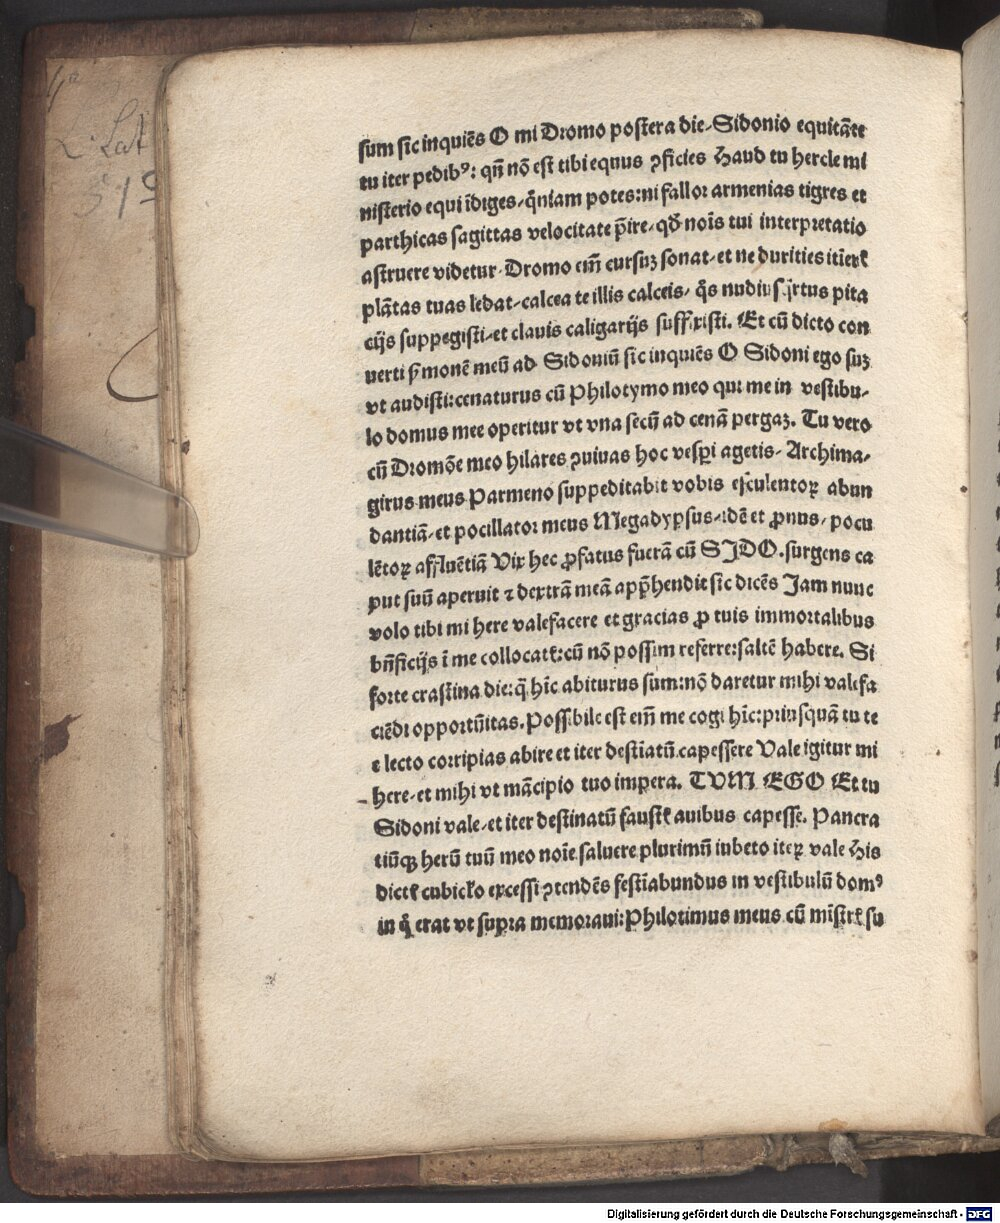 4°
L. Lat
519
sum sic inquiēs O mi Dromo postera die. Sidonio equitāte
tu iter pedibꝰ: qñ nō est tibi equus ꝯficies Haud tu hercle mi
nisterio equi īdiges, qͣniam potes: ni fallor armenias tigres et
parthicas sagittas velocitate p̄ire, qđ noīs tui interpretatio
astruere videtur. Dromo em̄ cursuꝫ sonat, et ne durities itīerꝭ
plātas tuas ledat, calcea te illis calceis, qͦs nudius qrtus pita
cijs suppegisti, et clauis caligarijs suffixisti. Et cū dicto con
uerti sꝰmonē meū ad Sidoniū sic inquiēs O Sidoni ego suꝫ
vt audisti: cenaturus cū Philotymo meo qui me in vestibu,
lo domus mee operitur vt vna secū ad cenā pergaꝫ. Tu vero
cū Dromōe meo hilares ꝯuiuas hoc vesꝑi agetis. Archima,
girus meus Parmeno suppeditabit vobis esculentoꝝ abun
dantiā, et pocillator meus Megadypsus, idē et ꝓnus, pocu
lētoꝝ affluētiā Vix hec ꝓfatus fuerā cū SIDO. surgens ca
put suū aperuit ⁊ dextrā meā app̄hendit sic dicēs Jam nunc
volo tibi mi here valefacere et gracias ꝓ tuis immortalibus
bn̄ficijs ī me collocatꝭ: cū nō possim referre: saltē habere. Si
forte crastina die: qͣ hīc abiturus sum: nō daretur mihi valefa
ciēdi opportūitas. Possibile est em̄ me cogi hīc: priusquā tu te
e lecto corripias abire et iter destīatū capessere Vale igitur mi
here, et mihi vt mācipio tuo impera. TVM EGO Et tu
Sidoni vale, et iter destinatū faustꝭ auibus capesse. Pancra
tiūqꝫ herū tuū meo noīe saluere plurimū iubeto iteꝝ vale His
dictꝭ cubicło excessi ꝯtendēs festīabundus in vestibulū domꝰ
in qͦ erat vt supra memoraui: Philotimus meus cū mīstrꝭ su
Digitalisierung gefördert durch die Deutsche Forschungsgemeinschaft - DFG